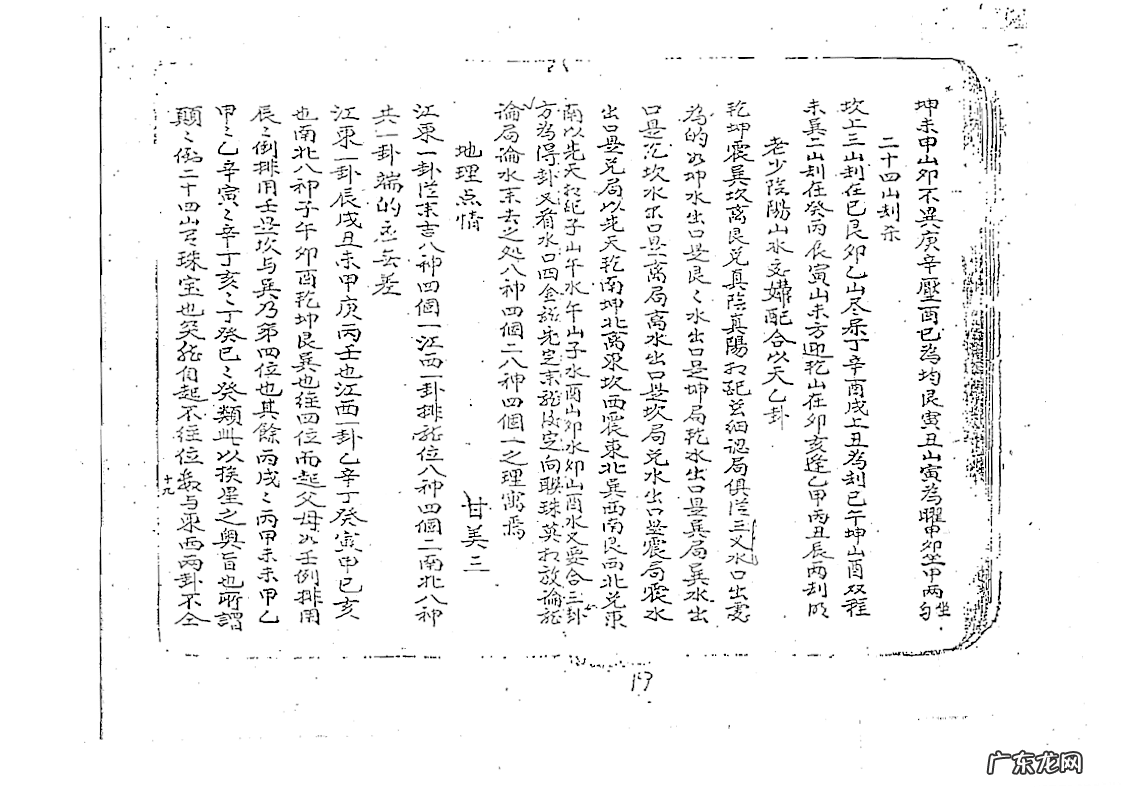 坤未申山卯不異庚辛壓酉巳為均艮寅丑山寅為曜申卯坐甲兩勾
二十四山刦杀
坎上三山刦在巳艮卯乙山尽忌丁辛酉戌上丑為刦巳午坤山酉双程
未巽二山刦在癸丙辰寅山未方迎乾山在卯亥逢乙甲丙丑辰两刦明
老少陰陽山水交媾配合以天乙卦
乾坤震巽坎离艮兑真陰真陽相配若細認局俱従三叉水口出處
為的如坤水出口是艮々水出口是坤局乾水出口是巽局巽水出
口是乾坎水出口是离局离水出口是坎局兑水出口是震局震水
出口是兑局以先天乾南坤北离東坎西震東北巽西南艮西北兑東
南以先天相配子山午水午山子水酉山卯水卯山酉水又要合三卦
方為得卦又看水口四金龍先定來龍後定向聯珠莫相放論龍
論局論水來去之処八神四個二八神四個一之理寓焉
地理点情 甘美三
江東一卦従来吉八神四個一江西一卦排龍位八神四個二南北八神
共一卦端的应無差
江東一卦辰戌丑未甲庚丙壬也江西一卦乙辛丁癸寅申巳亥
也南北八神子午卯酉乾坤艮巽也往四位而起父母如壬例排用
辰々倒排用壬是坎与巽乃第四位也其餘丙戌々丙甲未未甲乙
甲々乙辛寅々辛丁亥々丁癸巳々癸類此以挨星之奥旨也所謂
顛々倒二十四山有珠宝也矣龍自起不往位数与東西两卦不仝
十九
19
广东龙网